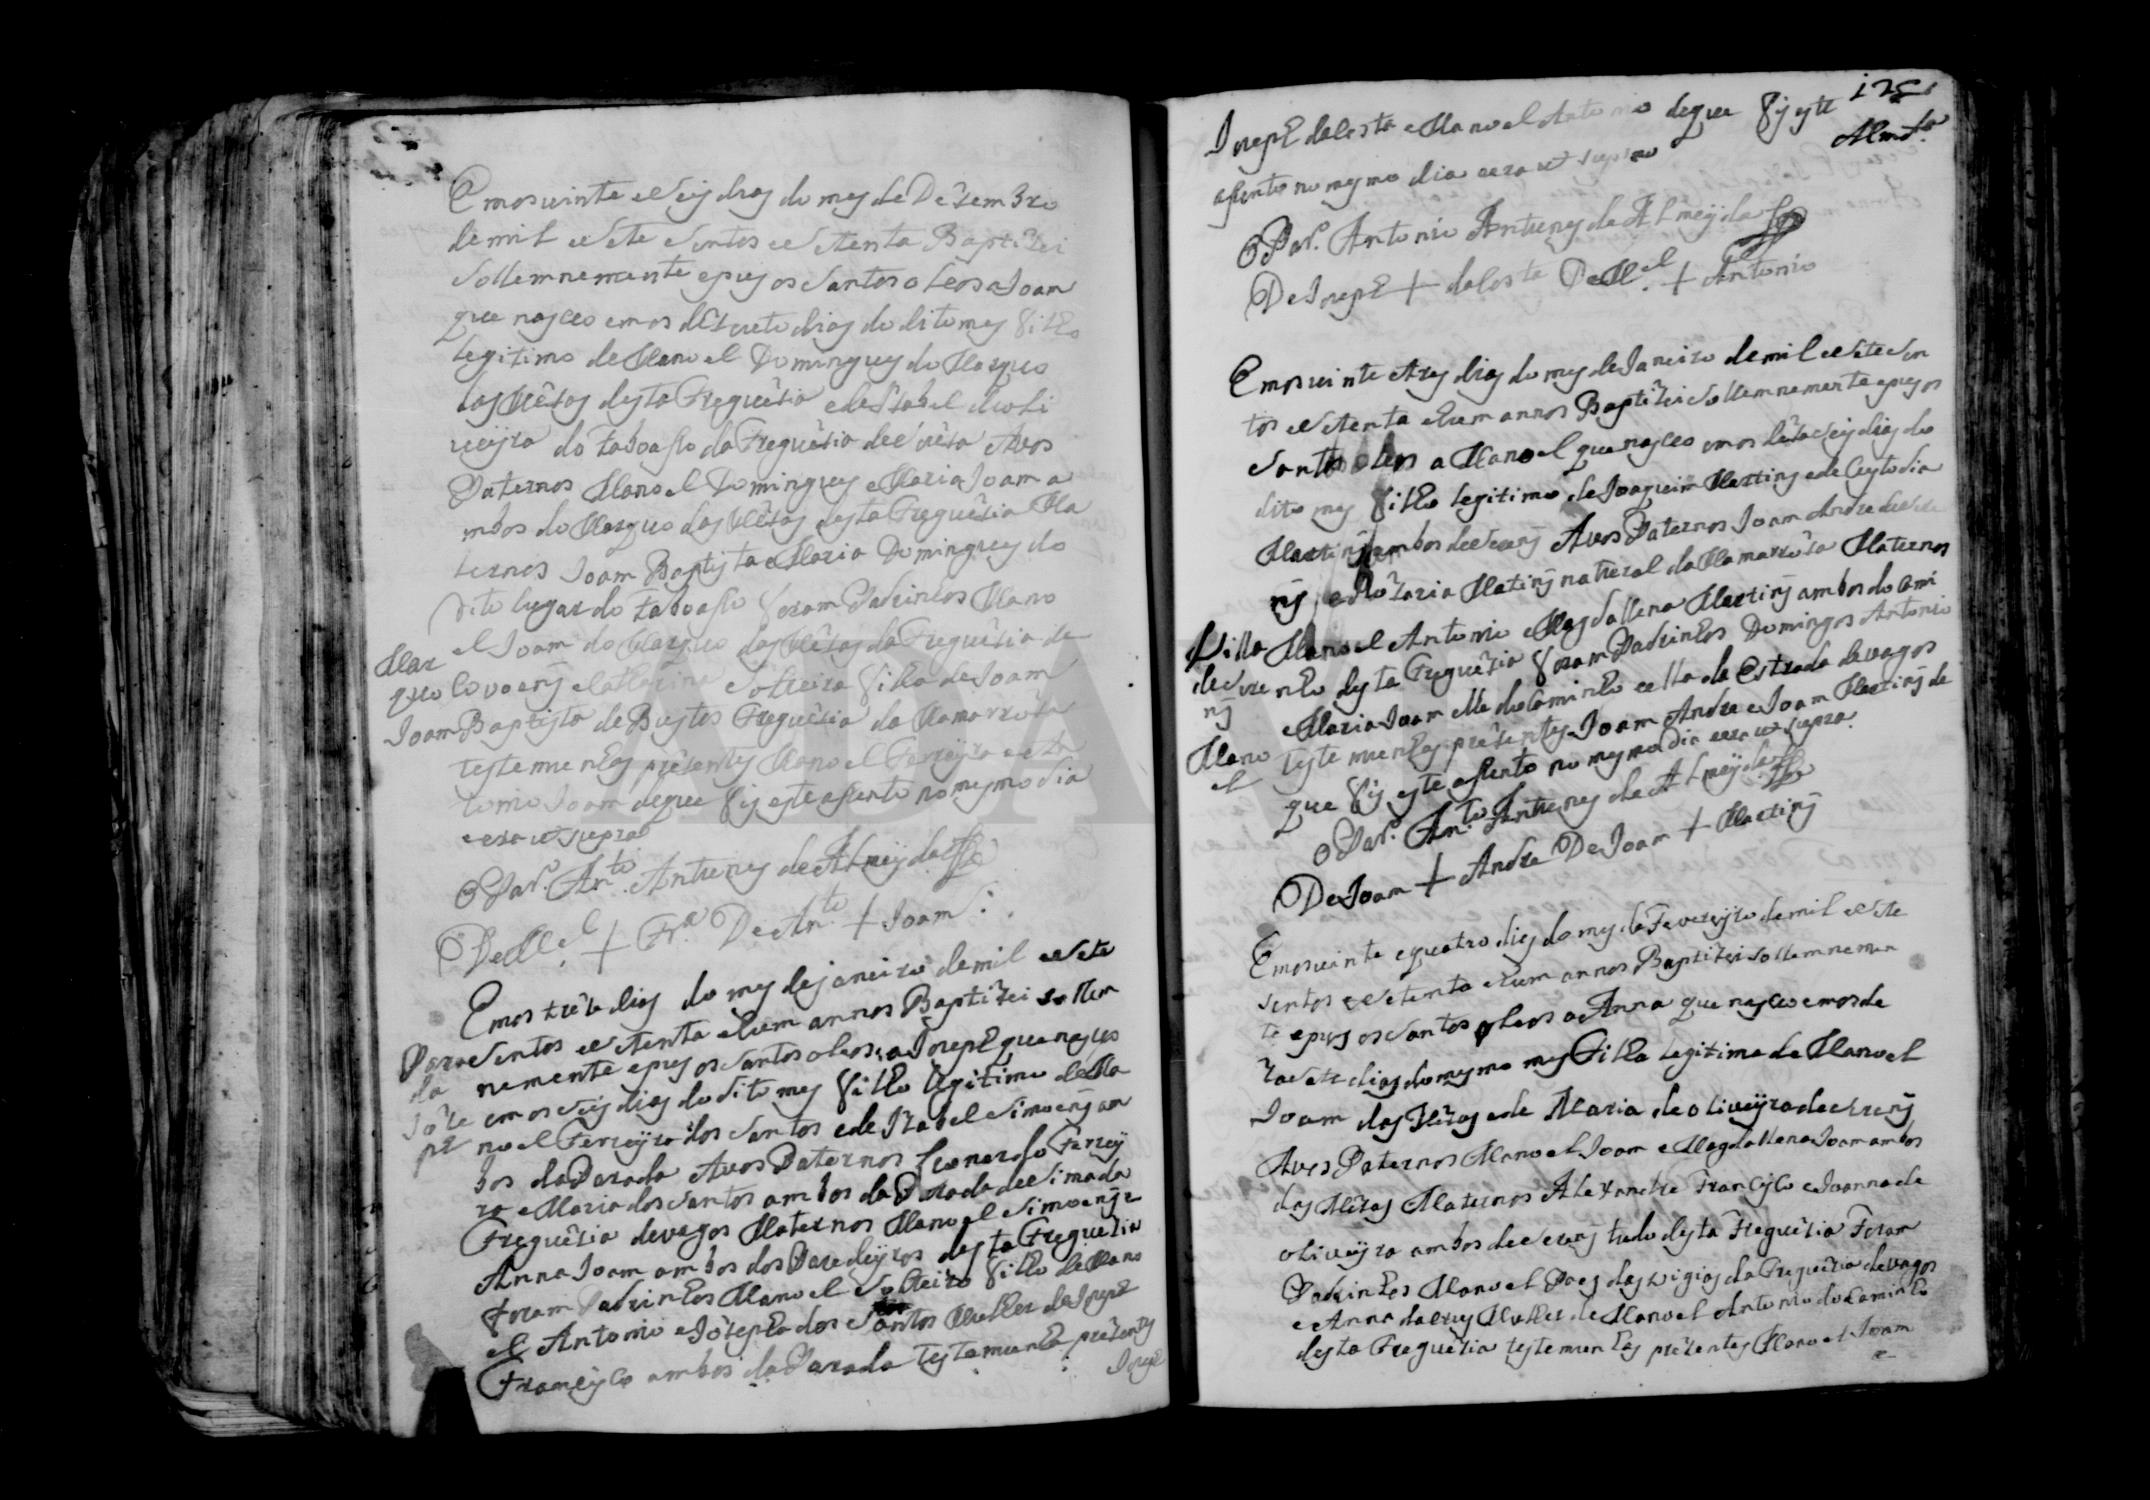 Emos vinte e seis dias do mes de Dezembro
de mil e sete sentos e setenta Baptizei
sollemnemente e pus os santos oleos a Joam
que nasceo emos dezoito dias do dito mes filho
legitimo de Manoel Domingues do Marquo
das Mezas desta Freguezia e de Izabel de oli
veyra do taboasso da Freguezia de Soza Avos
Paternos Manoel Domingues e Maria Joam a
mbos do Marquo das Mezas desta Freguezia Ma
ternos Joam Baptista e Maria Domingues do
dito lugar do taboasso foram Padrinhos Mano
el Joam do Marquo das Mezas da Freguezia de
Mar
quo
Joam
Covoens e Catherina Solteira filha de Joam
Baptista de Bustos Freguezia da Mamarroza
testemunhas prezentes Manoel Ferreyra e An
tonio Joam de que fis este asento no mesmo dia
e era ut supra
O Par. Anto. Antunes de Almeyda
De Mel. + Fra. De Anto. + Joam
Emos treze dias do mes de janeiro de mil e sete
Para
da
Joze
ph
sentos e setenta e hum annos Baptizei sollem
nemente e pus os santos oleos a Joseph que nasceo
emos seis dias do dito mes filho legitimo de Ma
noel Ferreyra dos santos e de Izabel Simoens am
bos da Parada Avos Paternos Leonardo Ferrey
ra e Maria dos santos ambos da Parada de Sima da
Freguezia de vagos Maternos Manoel Simoens e
Anna Joam ambos dos Paredeyros desta Freguezia
foram Padrinhos Manoel Solteiro filho de Mano
el Antonio e Jozepha dos Santos Mulher de Joseph
Francisco ambos da Parada testemunhas prezentes
Joseph
125
Joseph da Costa e Manoel Antonio de que fis este
Almda.
asento no mesmo dia e era ut supra
O Par. Antonio Antunes de Almeyda
De Joseph + da Costa De Mel. + Antonio
Emos vinte e tres dias do mes de Janeiro de mil e sete sen
tos e setenta e hum annos Baptizei sollemnemente e pus os
santos oleos a Manoel que nasceo emos dezaseis dias do
dito mes filho legitimo de Joaquim Martins e de Custodia
Martins ambos de Serens Avos Paternos Joam Andre de Sere
ns e Rozaria Martins natural da Mamarroza Maternos
Manoel Antonio e Magdallena Martins ambos do Cami
Villa
de Sere
ns
Mano
el
nho desta Freguezia foram Padrinhos Domingos Antonio
e Maria Joam elle do Caminho e ella da Estrada de vagos
testemunhas prezentes Joam Andre e Joam Martins de
que fis este asento no mesmo dia e era ut supra.
O Par. Anto. Antunes de Almeyda
De Joam + Andre De Joam + Martins
Emos vinte e quatro dias do mes de Fevereyro de mil e sete
sentos e setenta e hum annos Baptizei sollemnemen
te e pus os santos oleos a Anna que nasceo emos de
zasete dias do mesmo mes Filha legitima de Manoel
Joam das Mezas e de Maria de oliveyra de Serens
Avos Paternos Manoel Joam e Magdallena Joam ambos
das Mezas Maternos Alexandre Francisco e Joanna de
oliveyra ambos de Serens tudo desta Freguezia Foram
Padrinhos Manoel Paes das vigias da Freguezia de vagos
e Anna da crus Mulher de Manoel Antonio do Caminho
desta Freguezia testemunhas prezentes Manoel Joam
e